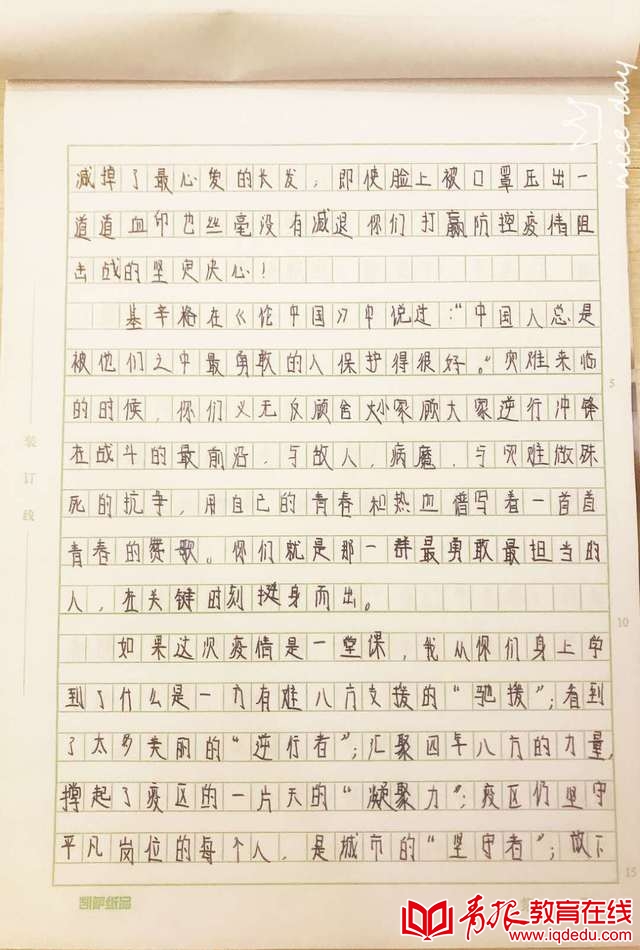 nice day
减掉了最心爱的长发；即使脸上被口罩压出一
道道血印也丝毫没有减退你们打赢防控疫情阻
击战的坚定决心！
基辛格在《伦中国》中说过："中国人总是
被他们之中最勇敢的人保护得很好。"灾难来临
的时候，你们义无反顾舍小家顾大家逆行冲锋
在战斗的最前沿，与敌人，病魔，与灾难做殊
死的抗争，用自己的青春和热血谱写着一首首
青春的赞歌。你们就是那一群最勇敢最担当的
人，在关键时刻挺身而出。
如果这次疫情是一堂课，我从你们身上学
到了什么是一方有难八方支援的"驰援"；看到
了太多美丽的"逆行者"；汇聚四年八方的力量，
撑起了疫区的一片天的"凝聚力"；疫区仍坚守
平凡岗位的每个人，是城市的"坚守者"；放下
装订线
5
10
15
凯萨纸品
青报教育在线
www.iqdedu.com